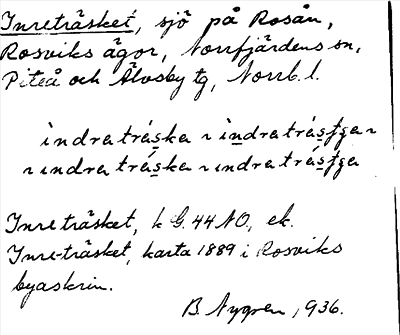 Inreträsket, sjö på Rosån,
Rosviks ägor, Norrfjärdens sn,
Piteå och Älvsby tg, Norrb. l.
indraträska ~ indraträstʃa ~
~ ındraträska ~ ındraträstʃa
Inreträsket, k G. 44 NO, ek.
Inre-träsket, karta 1889 i Rosviks
byaskrin.
B. Nygren, 1936.